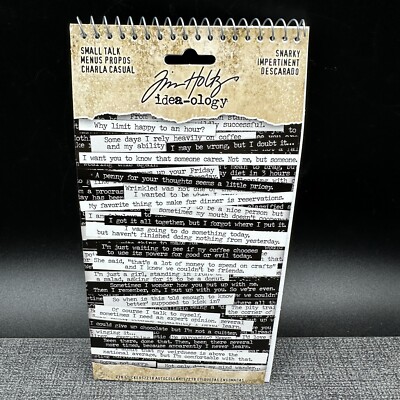 SMALL TALK
MENUS PROPOS
CHARLA CASUAL
SNARKY
IMPERTINENT
DESCARADO
Tim Holtz
idea-ology
Why limit happy to an hour?
successfully.
Some days I rely heavily on coffee
and my ability
I may be wrong, but I doubt it...
I want you to know that someone cares. Not me, but someone.
up your Friday
diet in 3 hours
A penny for your thoughts seems a little pricey.
Wrinkled was not
I wanted to be when
My favorite thing to make for dinner is reservations.
to be a nice person but
sometimes my mouth doesn't
I got it all together, but I forgot where I put it.
I was going to do something today,
but haven't finished doing nothing from yesterday.
I'm just waiting to see if my coffee chooses
to use its powers for good or evil today.
She said, "that's a lot of money to spend on crafts"
and I knew we couldn't be friends.
I'm just a girl, standing in
a salad, asking for it to be a donut.
Sometimes I wonder how you put up with me.
Then I remember, oh, I put up with you. So we're even.
So when is this "old enough to know
better" supposed to kick in?
Of course I talk to myself,
sometimes I need an expert opinion.
I could give up chocolate but I'm not a quitter.
winging it...
Been there, done that. Then, been there several
more times, because apparently I never learn.
that my weirdness is above the
national average, but I'm comfortable with that.